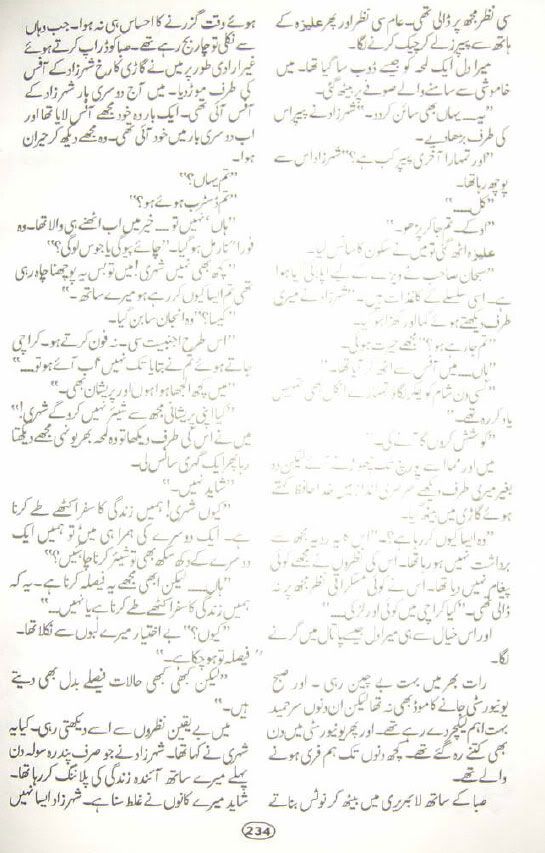 سی نظر مجھ پر ڈالی تھی۔ عام سی نظر اور پھر علیزہ کے
ہاتھ سے پیپرز لے کر چیک کرنے لگا۔
میرا دل ایک لمحہ کو جیسے ڈوب سا گیا تھا۔ میں
خاموشی سے سامنے والے صوفے پر بیٹھ گئی۔
”یہ۔۔۔ یہاں بھی سائن کردو۔“ شہرزاد نے پیپر اس
کی طرف بڑھادیے۔
”اور تمہارا آخری پیپر کب ہے؟“ شہرزاد اس سے
پوچھ رہا تھا۔
”کل۔۔۔۔“
”اوکے۔ تم جا کر پڑھو۔“
علیزہ اٹھ گئی تو میں نے سکون کا سانس لیا۔
”سبحان صاحب نے ویزے کے لیے اپلائی کیا ہوا
ہے۔ اسی سلسلے کے کاغذات ہیں۔“ شہرزاد نے میری
طرف دیکھتے ہوئے کہا اور کھڑا ہو گیا۔
”تم جا رہے ہو؟“ مجھے حیرت ہوئی۔
”ہاں۔۔۔ میں آفس سے اٹھ کر آیا تھا۔“
”کسی دن شام کو چکر لگاؤ تمہارے انکل بھی تمہیں
یاد کر رہے تھے۔“
”کوشش کروں گا آنے کی۔“
میں اور مما اسے پورچ تک چھوڑنے آئے لیکن وہ
بغیر میری طرف دیکھے سرسری انداز میں خدا حافظ کہتے
ہوئے گاڑی میں بیٹھ گیا۔
”وہ ایسا کیوں کر رہا ہے؟“ اس کا یہ رویہ مجھ سے
برداشت نہیں ہو رہا تھا۔ اس کی نظروں نے مجھے کوئی
پیغام نہیں دیا تھا۔ اس نے کوئی مسکراتی نظر مجھ پر نہ
ڈالی تھی۔ ”کیا کراچی میں کوئی اور لڑکی۔۔۔۔“
اور اس خیال سے ہی میرا دل جیسے پاتال میں گرنے
لگا۔
رات بھر میں بہت بے چین رہی۔ اور صبح
یونیورسٹی جانے کا موڈ بھی نہ تھا لیکن ان دنوں سر حمید
بہت اہم لیکچر دے رہے تھے۔ اور پھر یونیورسٹی میں دن
بھی کتنے رہ گئے تھے۔ کچھ دنوں تک ہم فری ہونے
والے تھے۔
صبا کے ساتھ لائبریری میں بیٹھ کر نوٹس بناتے
ہوئے وقت گزرنے کا احساس ہی نہ ہوا۔ جب وہاں
سے نکلی تو چار بج رہے تھے۔ صبا کو ڈراپ کرتے ہوئے
غیر ارادی طور پر میں نے گاڑی کا رخ شہرزاد کے آفس
کی طرف موڑ دیا۔ میں آج دوسری بار شہرزاد کے
آفس آئی تھی۔ ایک بار وہ خود مجھے آفس لایا تھا اور
اب دوسری بار میں خود آئی تھی۔ وہ مجھے دیکھ کر حیران
ہوا۔
”تم یہاں؟“
”تم ڈسٹرب ہوئے ہو؟“
”ہاں‘ نہیں تو۔۔۔ خیر میں اب اٹھنے ہی والا تھا۔ وہ
فوراً نارمل ہو گیا۔“ چائے پیوگی یا جوس لوگی؟“
”کچھ بھی نہیں شہری! میں تو بس یہ پوچھنا چاہ رہی
تھی تم ایسا کیوں کر رہے ہو میرے ساتھ۔“
”کیسا؟“ وہ انجان سا بن گیا۔
”اس طرح اجنبیت سی۔ نہ فون کرتے ہو۔ کراچی
جاتے ہوئے تم نے بتایا تک نہیں‘ اب آئے ہو تو۔۔۔“
”میں کچھ الجھا ہوا ہوں اور پریشان بھی۔“
”کیا اپنی پریشانی مجھ سے شیئر نہیں کرو گے شہری!“
میں نے اس کی طرف دیکھا تو وہ لمحہ بھر یونہی مجھے دیکھتا
رہا پھر ایک گہری سانس لی۔
”شاید نہیں۔“
”کیوں شہری! ہمیں زندگی کا سفر اکٹھے طے کرنا
ہے۔ ایک دوسرے کی ہمراہی میں‘ تو ہمیں ایک
دوسرے کے دکھ سکھ بھی تو شیئر کرنا چاہئیں؟“
”ہاں۔۔۔ لیکن ابھی مجھے یہ فیصلہ کرنا ہے۔ یہ کہ
ہمیں زندگی کا سفر اکٹھے طے کرنا ہے یا نہیں۔۔۔“
”کیوں؟“ بے اختیار میرے لبوں سے نکلا تھا۔
”فیصلہ تو ہو چکا ہے۔“
”لیکن کبھی کبھی حالات فیصلے بدل بھی دیتے
ہیں۔“
میں بے یقین نظروں سے اسے دیکھتی رہی۔ کیا یہ
شہری نے کہا تھا۔ شہرزاد نے جو صرف پندرہ سولہ دن
پہلے میرے ساتھ آئندہ زندگی کی پلاننگ کر رہا تھا۔
شاید میرے کانوں نے غلط سنا ہے۔ شہرزاد ایسا نہیں
234